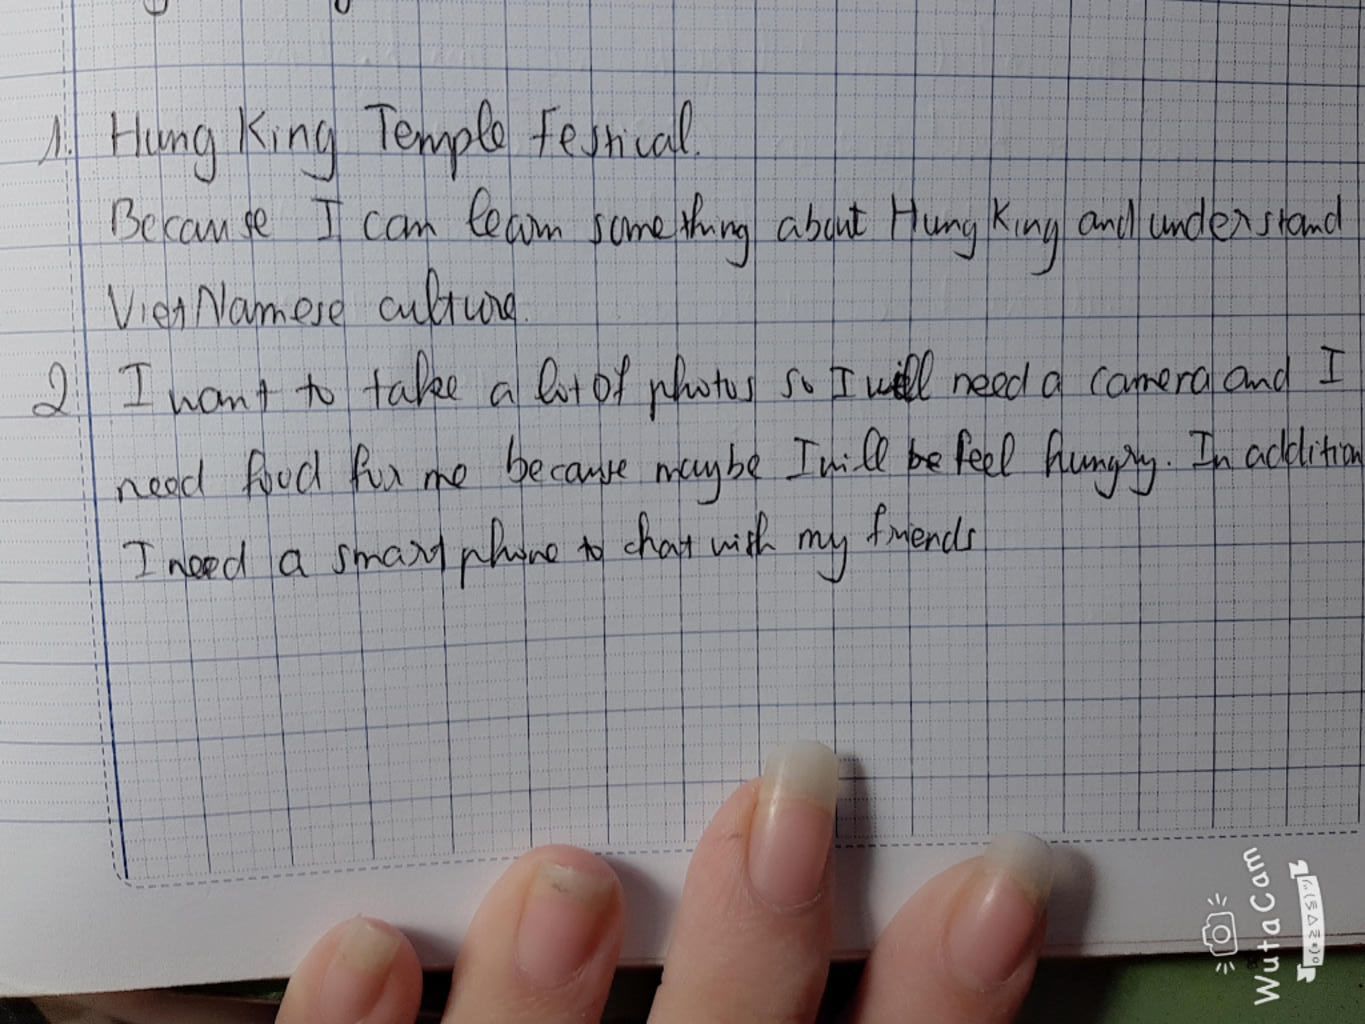 1. Hung King Temple Festival.
Because I can learn something about Hung King and understand
VietNamese culture.
2 I want to take a lot of photos so I will need a camera and I
need food for me because maybe I will be feel hungry. In addition
I need a smart phone to chat with my friends
WutaCam